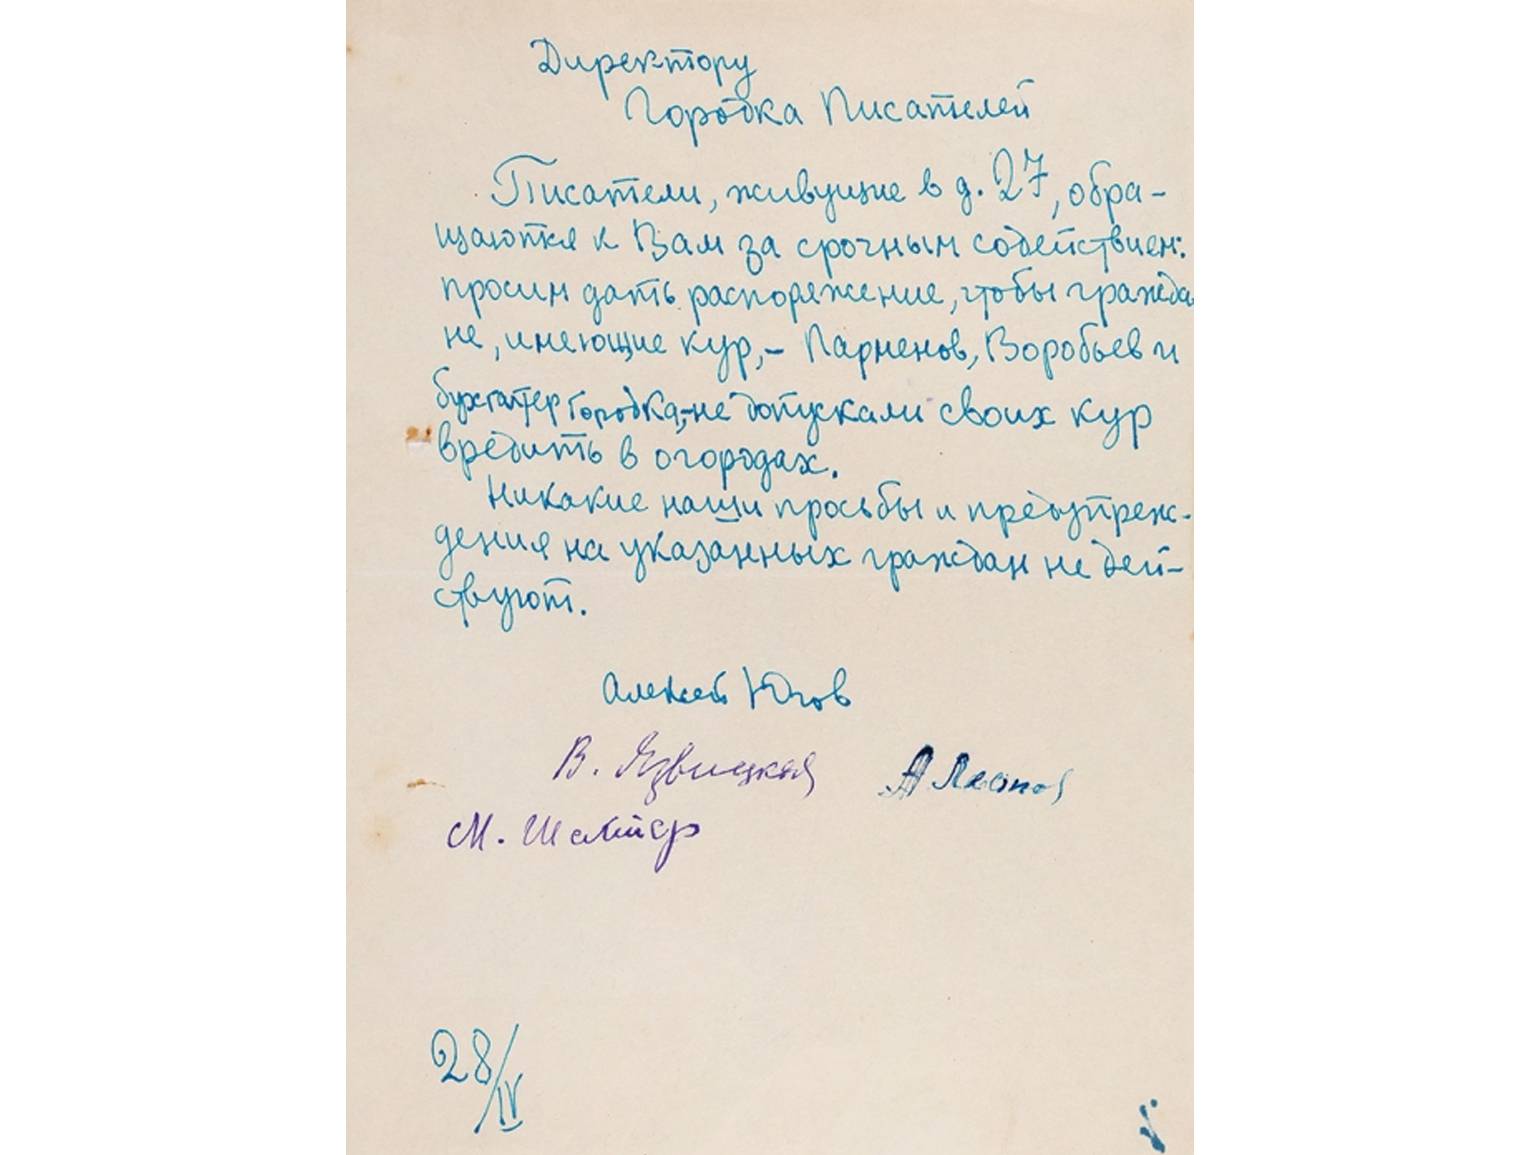 Директору
Городка Писателей
Писатели, живущие в д. 27, обра-
щаются к Вам за срочным содействием:
просим дать распоряжение, чтобы гражда
не, имеющие кур,- Парменов, Воробьев и
бухгалтер Городка,-не допускали своих кур
вредить в огородах.
Никакие наши просьбы и предупреж-
дения на указанных граждан не дей-
ствуют.
Алексей Югов
В. Язвицкий
М.
28/IV